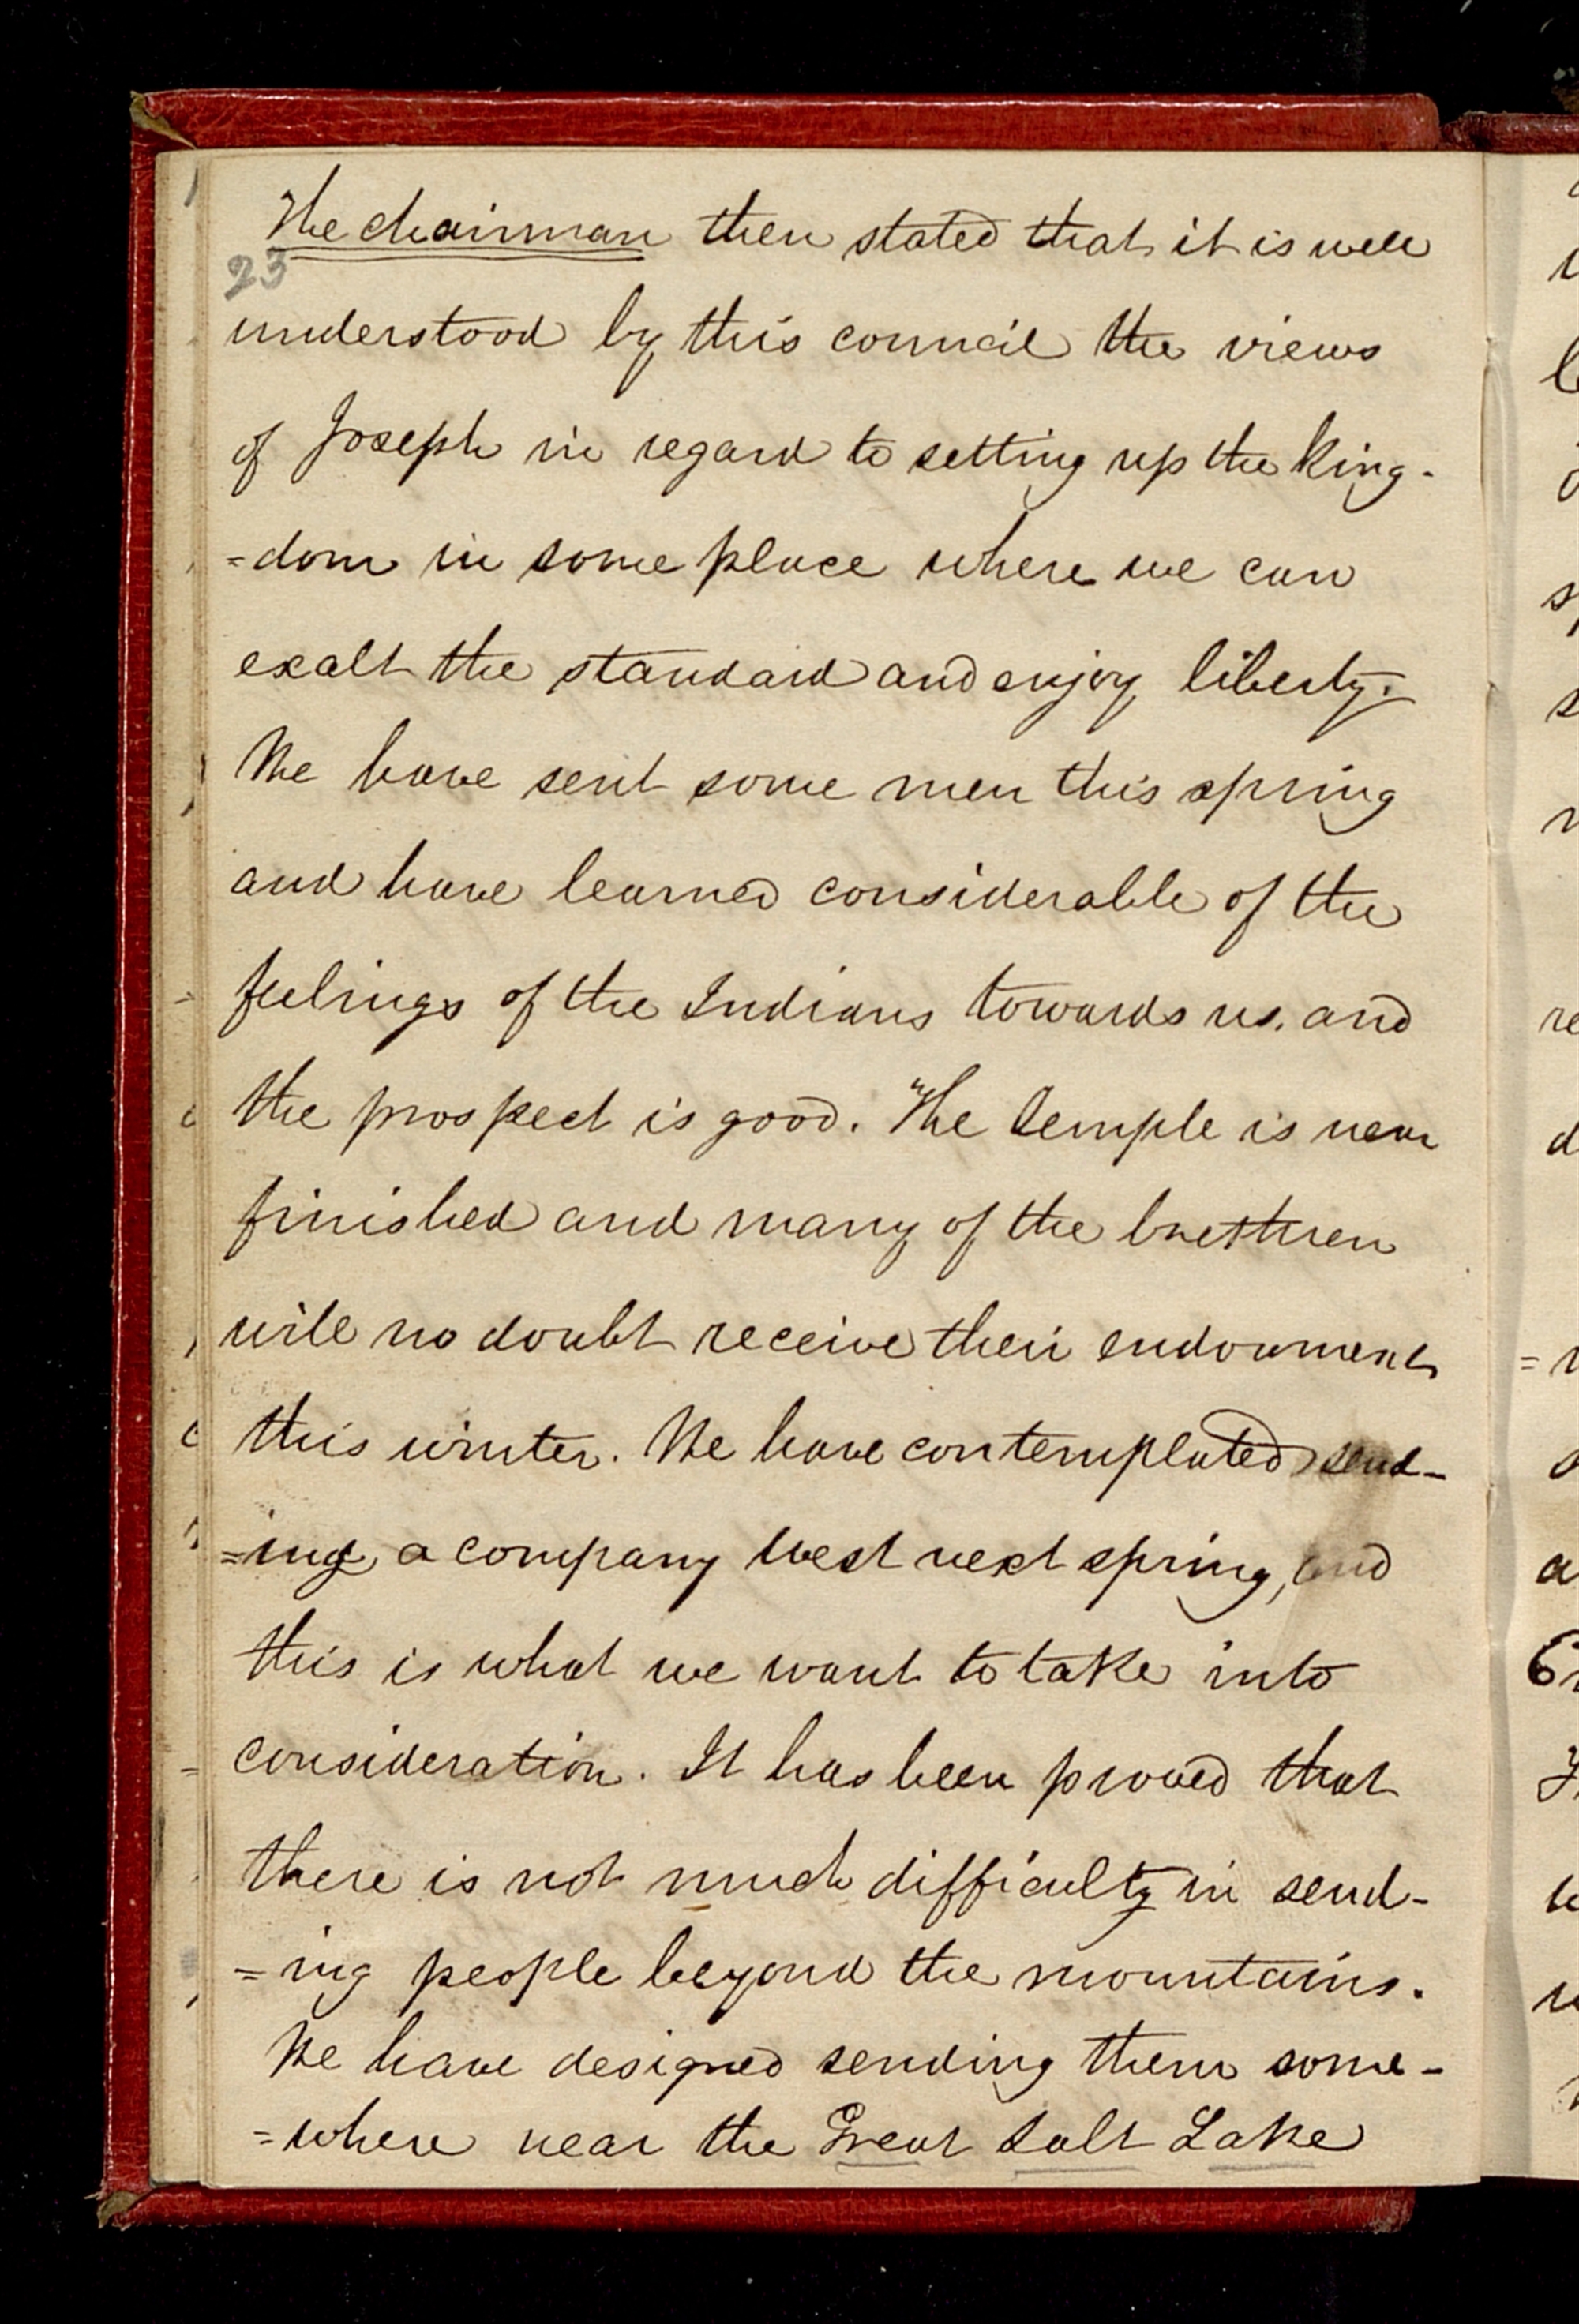 The chairman then stated that it is well
23
understood by this council the views
of Joseph in regard to setting up the king-
=dom in some place where we can
exalt the standard and enjoy liberty.
We have sent some men this spring
and have learned considerable of the
feelings of the Indians towards us, and
the prospect is good. The Temple is near
finished and many of the brethren
will no doubt receive their endowment
this winter. We have contemplated send-
=ing a company west next spring, and
this is what we want to take into
consideration. It has been proved that
there is not much difficulty in send-
=ing people beyond the mountains.
We have designed sending them some-
=where near the Great Salt Lake